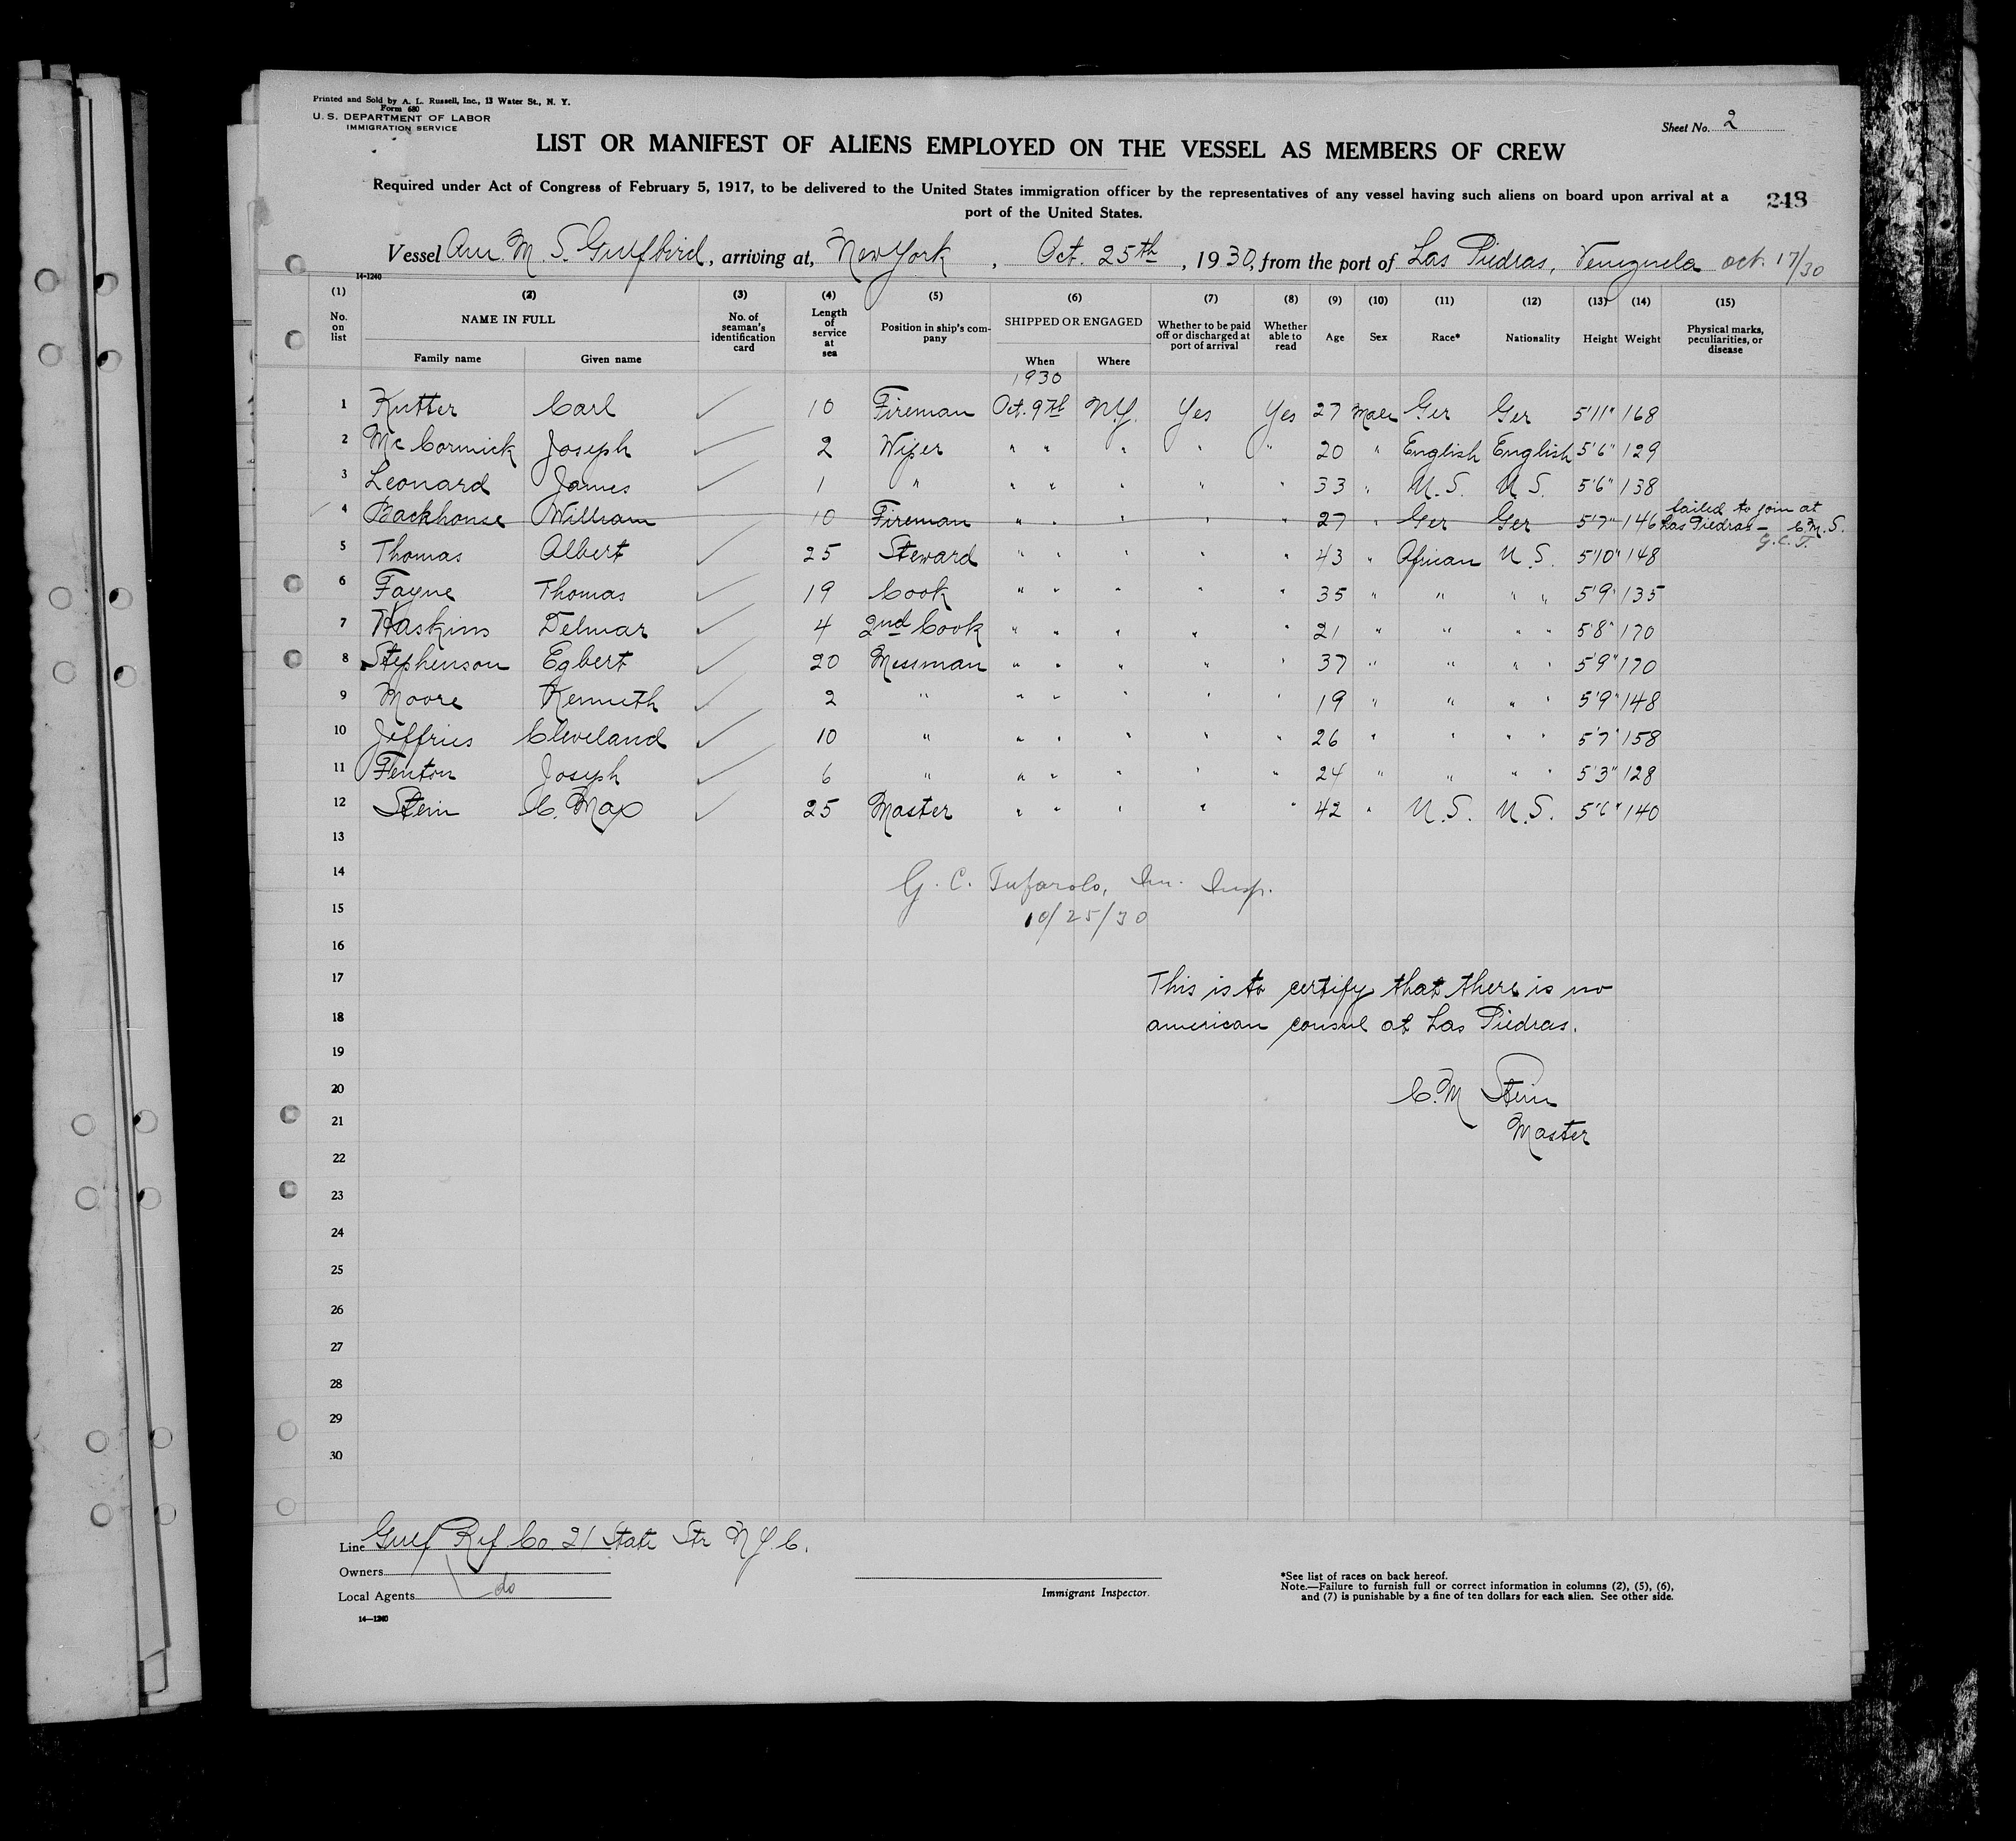 Printed and Sold by A. L. Russell, Inc., 13 Water St., N. Y.
Form 680
U. S. DEPARTMENT OF LABOR
IMMIGRATION SERVICE
Sheet No. 2
LIST OR MANIFEST OF ALIENS EMPLOYED ON THE VESSEL AS MEMBERS OF CREW
Required under Act of Congress of February 5, 1917, to be delivered to the United States immigration officer by the representatives of any vessel having such aliens on board upon arrival at a
port of the United States.
248
Vessel Am. M. S. Gulfbird, arriving at, New York, Oct. 25th, 1930, from the port of Las Piedras, Venezuela Oct. 17/30
14-1240
(1) (2) (3) (4) (5) (6) (7) (8) (9) (10) (11) (12) (13) (14) (15)
No. on list NAME IN FULL Family name Given name No. of seaman's identification card Length of service at sea Position in ship's company SHIPPED OR ENGAGED When Where Whether to be paid off or discharged at port of arrival Whether able to read Age Sex Race* Nationality Height Weight Physical marks, peculiarities, or disease
1930
1 Kutter Carl ✓ 10 Fireman Oct. 9th N.Y. Yes Yes 27 Male Ger Ger 5'11" 168
2 McCormick Joseph ✓ 2 Wiper " " " " " 20 " English English 5'6" 129
3 Leonard James ✓ 1 " " " " " " 33 " U.S. U.S. 5'6" 138
4 Backhouse William 10 Fireman " " " " " 27 " Ger Ger 5'7" 146 failed to join at
Las Piedras - C.M.S.
G.C.T.
5 Thomas Albert ✓ 25 Steward " " " " " 43 " African U.S. 5'10" 148
6 Fayne Thomas ✓ 19 Cook " " " " " 35 " " " " 5'9" 135
7 Haskins Delmar ✓ 4 2nd Cook " " " " " 21 " " " " 5'8" 170
8 Stephenson Egbert ✓ 20 Messman " " " " " 37 " " " " 5'9" 170
9 Moore Kenneth ✓ 2 " " " " " " 19 " " " " 5'9" 148
10 Jeffries Cleveland ✓ 10 " " " " " " 26 " " " " 5'7" 158
11 Fenton Joseph ✓ 6 " " " " " " 24 " " " " 5'3" 128
12 Stein C. Max ✓ 25 Master " " " " " 42 " U.S. U.S. 5'6" 140
13
14 G. C. Tufarolo, Im. Insp.
15 10/25/30
16
17 This is to certify that there is no
18 american consul at Las Piedras.
19
20 C.M Stein
21 Master
22
23
24
25
26
27
28
29
30
Line Gulf Ref Co. 21 State Str N.Y.C.
Owners
Local Agents do
Immigrant Inspector.
*See list of races on back hereof.
Note.—Failure to furnish full or correct information in columns (2), (5), (6),
and (7) is punishable by a fine of ten dollars for each alien. See other side.
14—1240